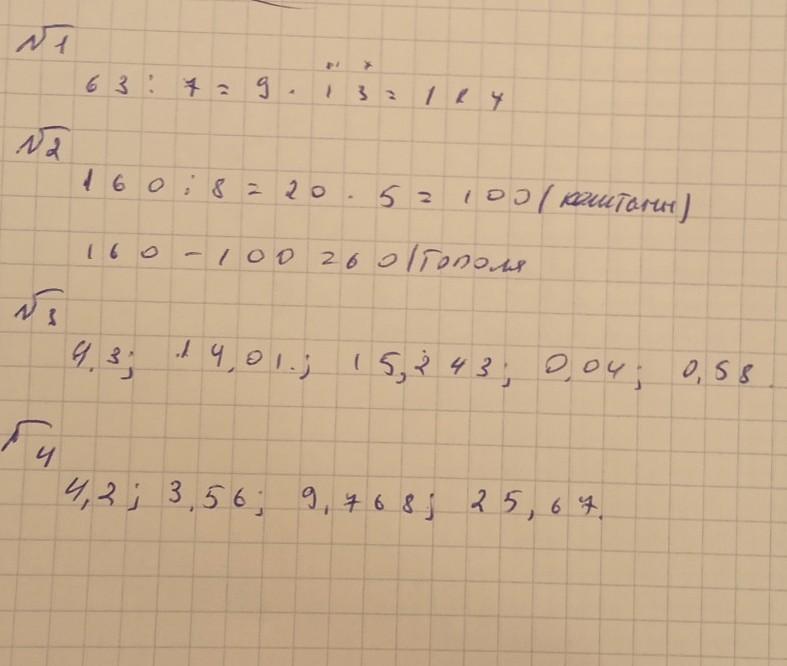 №1
63 : 7 = 9 · 13 = 117
№2
160 : 8 = 20 · 5 = 100 (каштаны)
160 - 100 = 60 (Тополя
№3
4.3; 14,01.; 15,243; 0,04; 0,58.
№4
4,2; 3,56; 9,768; 25,67.